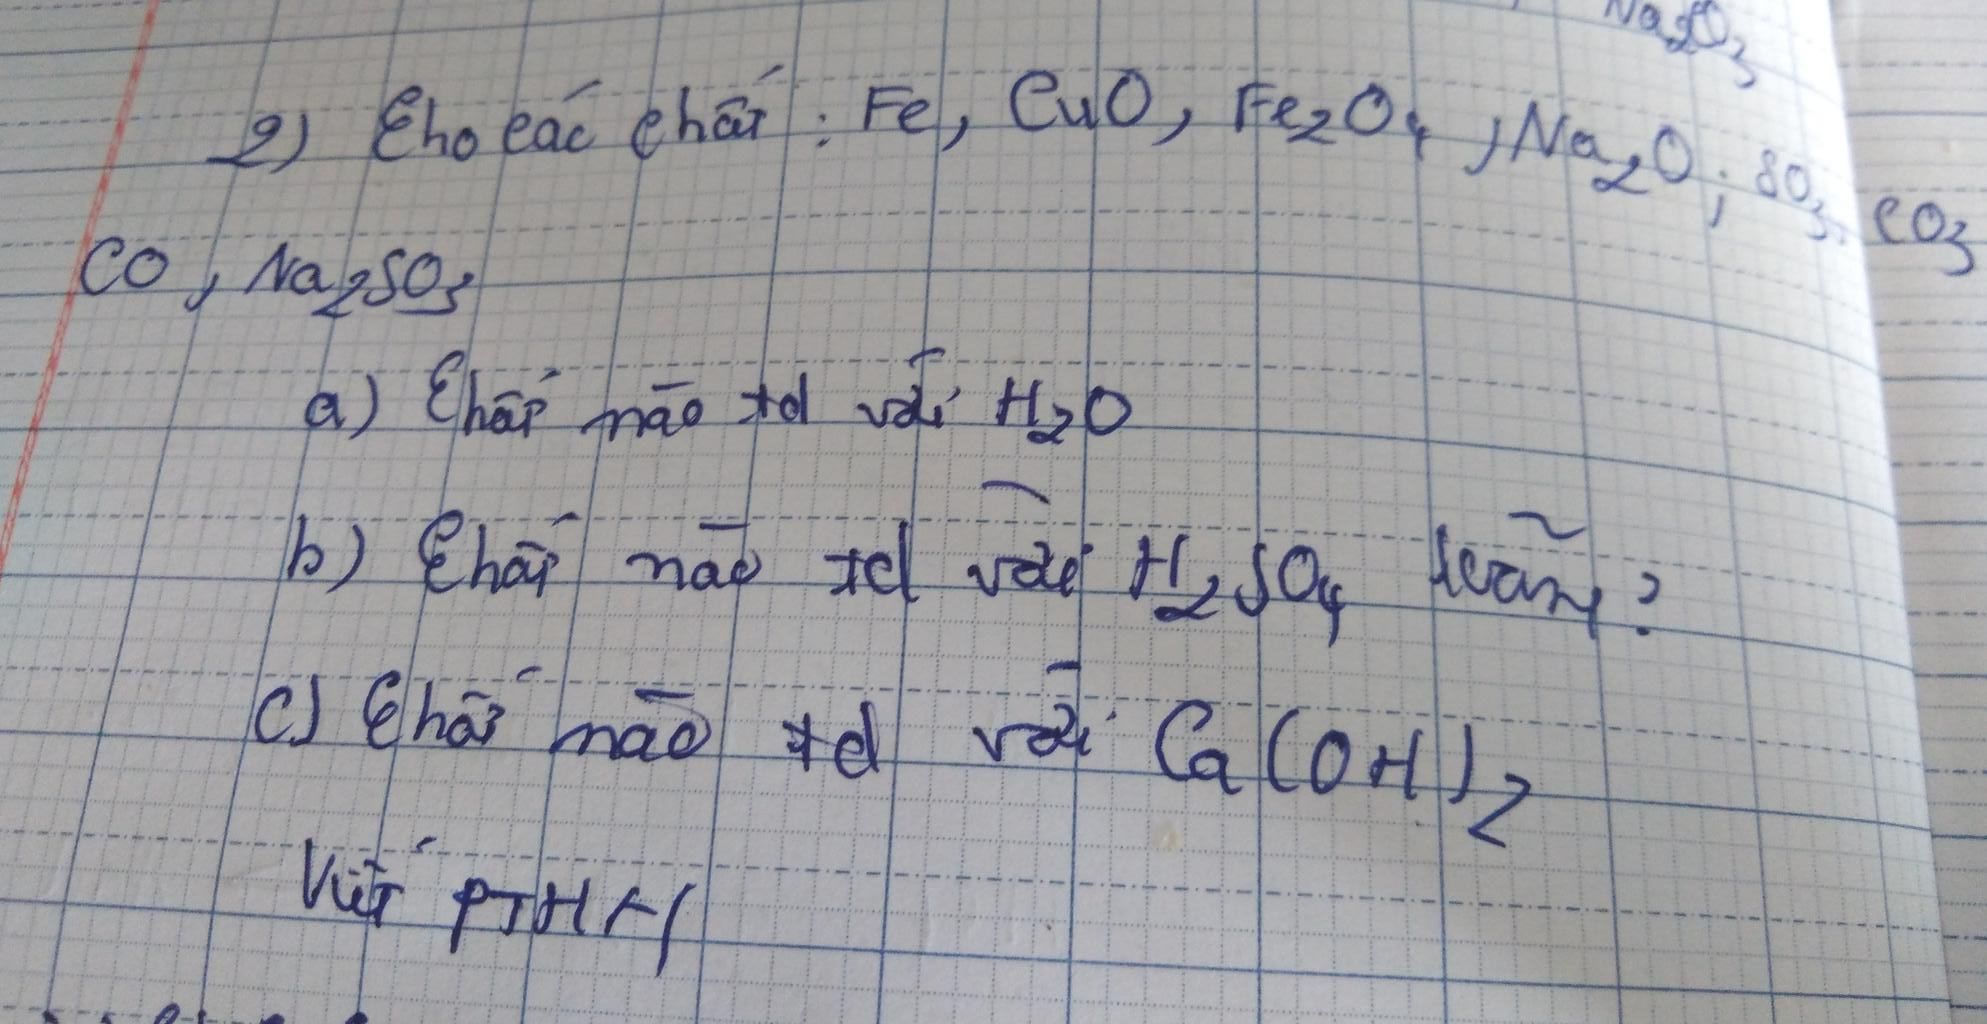 Na2SO3
2) Cho các chất : Fe, CuO, Fe2O4, Na2O; SO3, CO3
CO, Na2SO3
a) Chất nào td với H2O
b) Chất nào td với H2SO4 loãng?
c) Chất nào td với Ca(OH)2
Viết PTHH